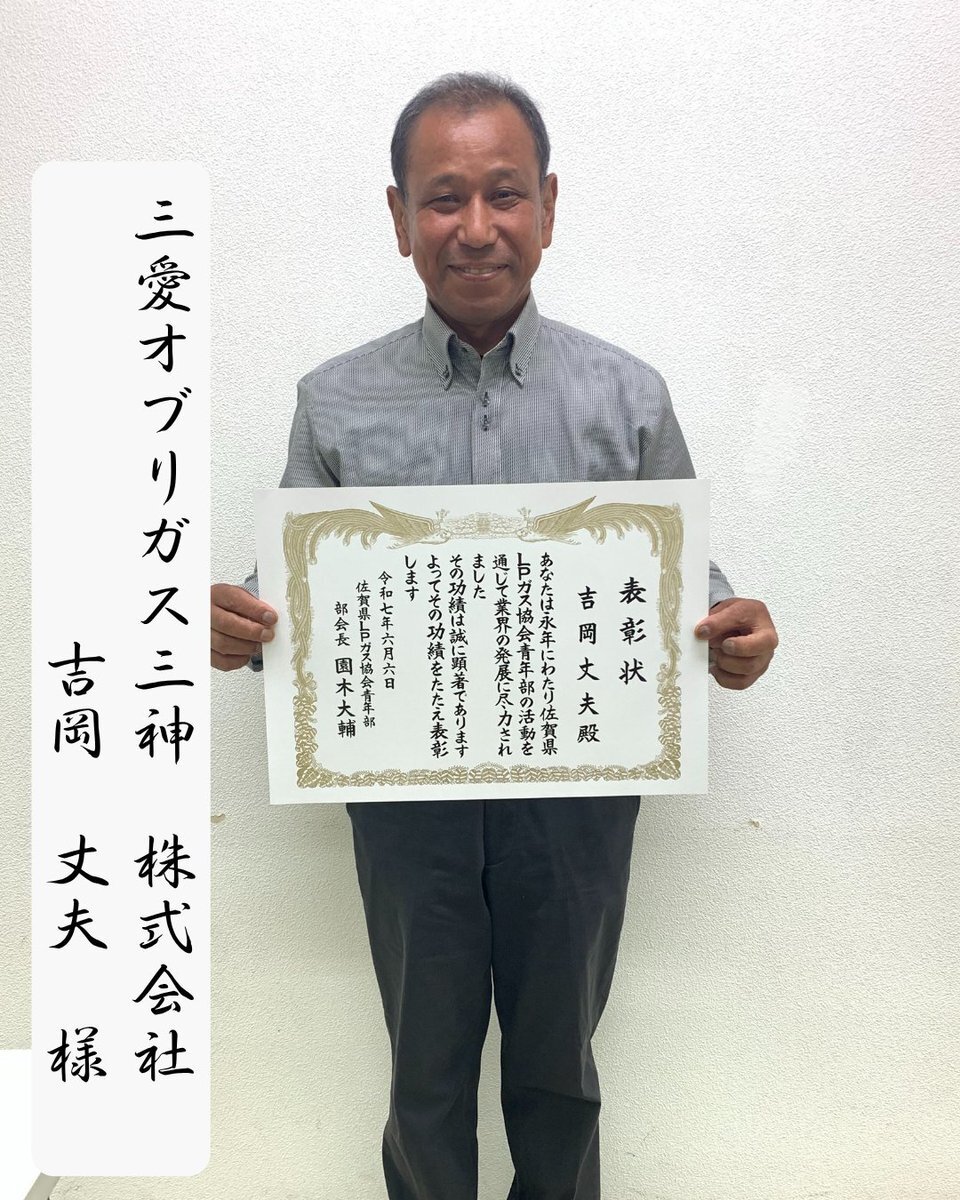 三愛オブリガス三神　株式会社
吉岡　丈夫　様
表彰状
吉岡丈夫殿
あなたは永年にわたり佐賀県
LPガス協会青年部の活動を
通じて業界の発展に尽力され
ました
その功績は誠に顕著であります
よってその功績をたたえ表彰
します
令和七年六月六日
佐賀県LPガス協会青年部
部会長　園木大輔